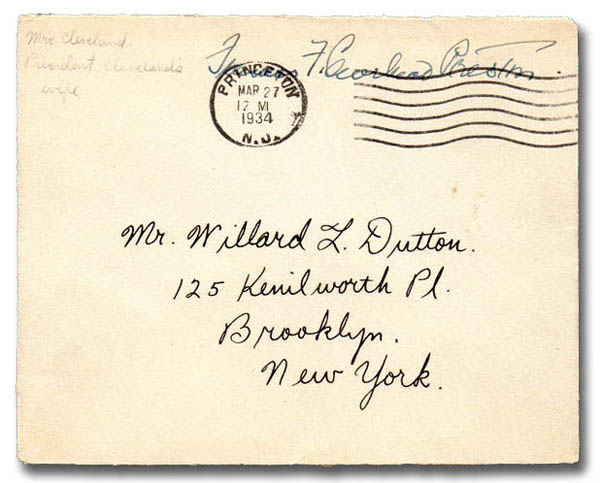 Mrs. Cleveland.
President Cleveland's
wife
Frances F. Cleveland Preston.
PRINCETON
MAR 27
12 M
1934
N.J.
Mr. Willard L. Dutton.
125 Kenilworth Pl.
Brooklyn.
New York.